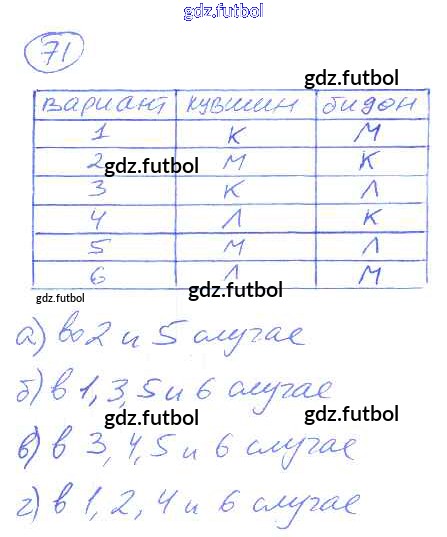 gdz.futbol
71
gdz.futbol
вариант кувшин бидон
1 К М
2 М К
gdz.futbol
3 К Л
4 Л К
5 М Л
6 Л М
gdz.futbol
gdz.futbol
а) во 2 и 5 случае
gdz.futbol
б) в 1, 3, 5 и 6 случае
gdz.futbol
в) в 3, 4, 5 и 6 случае
г) в 1, 2, 4 и 6 случае
gdz.futbol